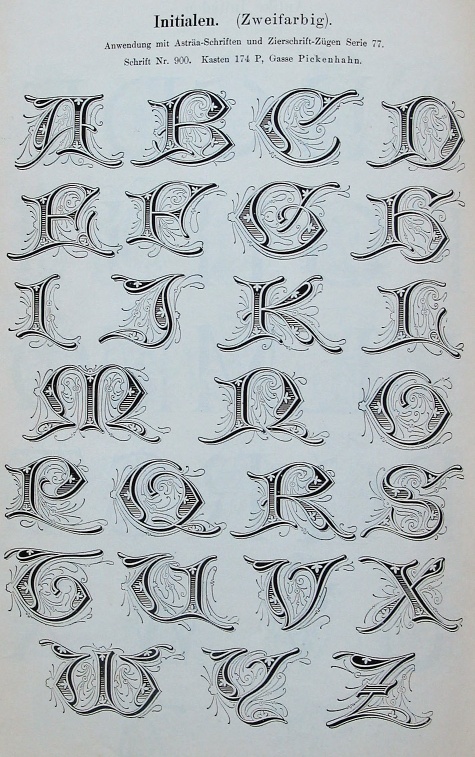 Initialen. (Zweifarbig).
Anwendung mit Asträa-Schriften und Zierschrift-Zügen Serie 77.
Schrift Nr. 900. Kasten 174 P, Gasse Pickenhahn.
A B C D
E F G H
I J K L
M N O
P Q R S
T U V X
W Y Z